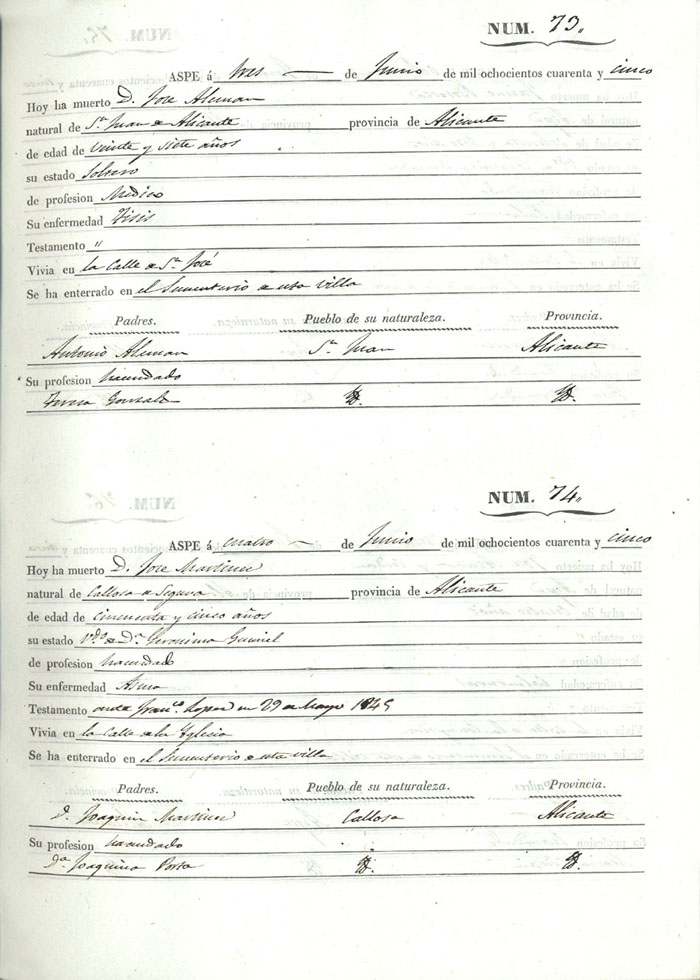 NUM. 73.
ASPE á tres de Junio de mil ochocientos cuarenta y cinco
Hoy ha muerto D. Jose Aleman
natural de Sn Juan de Alicante provincia de Alicante
de edad de veinte y siete años
su estado Soltero
de profesion Medico
Su enfermedad Tisis
Testamento "
Vivia en la Calle de Sn José
Se ha enterrado en el Sementerio de esta villa
Padres. Pueblo de su naturaleza. Provincia.
Antonio Aleman Sn Juan Alicante
Su profesion hacendado
Teresa Gonzalz Id. Id.
NUM. 74.
ASPE á cuatro de Junio de mil ochocientos cuarenta y cinco
Hoy ha muerto D. Jose Martinez
natural de Callosa de Segura provincia de Alicante
de edad de cincuenta y cinco años
su estado Vdo de Da Geronima
de profesion hacendado
Su enfermedad Asma
Testamento ante Franco Lopez en 29 de Mayo 1845
Vivia en la Calle de la Yglecia
Se ha enterrado en el Sementerio de esta villa
Padres. Pueblo de su naturaleza. Provincia.
D. Joaquin Martinez Callosa Alicante
Su profesion hacendado
Da Joaquina Id. Id.